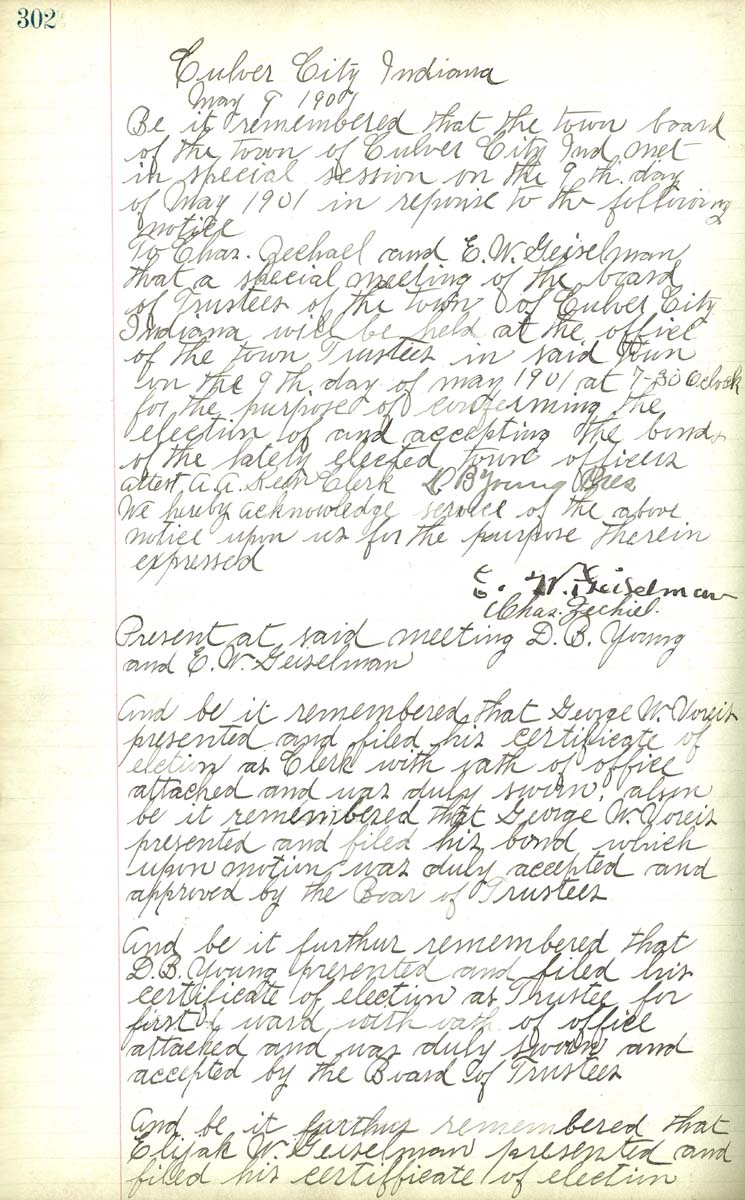 302
Culver City Indiana
May 9 1901
Be it remembered that the town board
of the town of Culver City Ind met
in special session on the 9th day
of May 1901 in reponse to the following
notice
To Chas. Zechael and E. W. Geiselman
that a special meeting of the board
of Trustees of the town of Culver City
Indiana will be held at the office
of the town Trustees in said town
on the 9th day of may 1901 at 7-30 Oclock
for the purpose of confirming the
election of and accepting the bonds
of the lately elected town officers
attest A. A. Keen Clerk D. B Young Pres
We hereby acknowledge service of the above
notice upon us for the purpose therein
expressed
E. W. Geiselman
Chas. Zechiel.
Present at said meeting D. B. Young
and E. W. Geiselman
And be it remembered that George W. Voreis
presented and filed his certificate of
election as Clerk with oath of office
attached and was duly sworn, also
be it remembered that George W Voreis
presented and filed his bond which
upon motion was duly accepted and
approved by the Boar of Trustees
And be it furthur remembered that
D. B. Young presented and filed his
certificate of election as Trustee for
first ward with oath of office
attached and was duly sworn and
accepted by the Board of Trustees
And be it furthur remembered that
Elijah W. Geiselman presented and
filed his certifficate of election